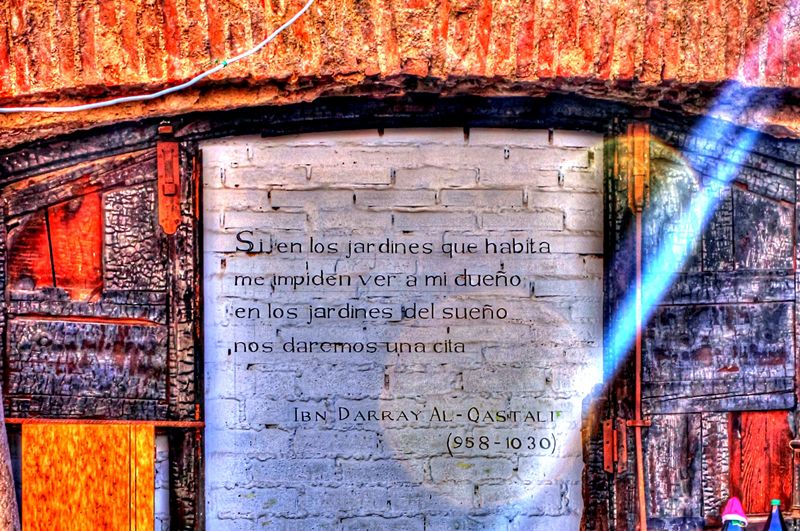 Si en los jardines que habita
me impiden ver a mi dueño
en los jardines del sueño
nos daremos una cita
Ibn Darray Al-Qastali
(958-1030)